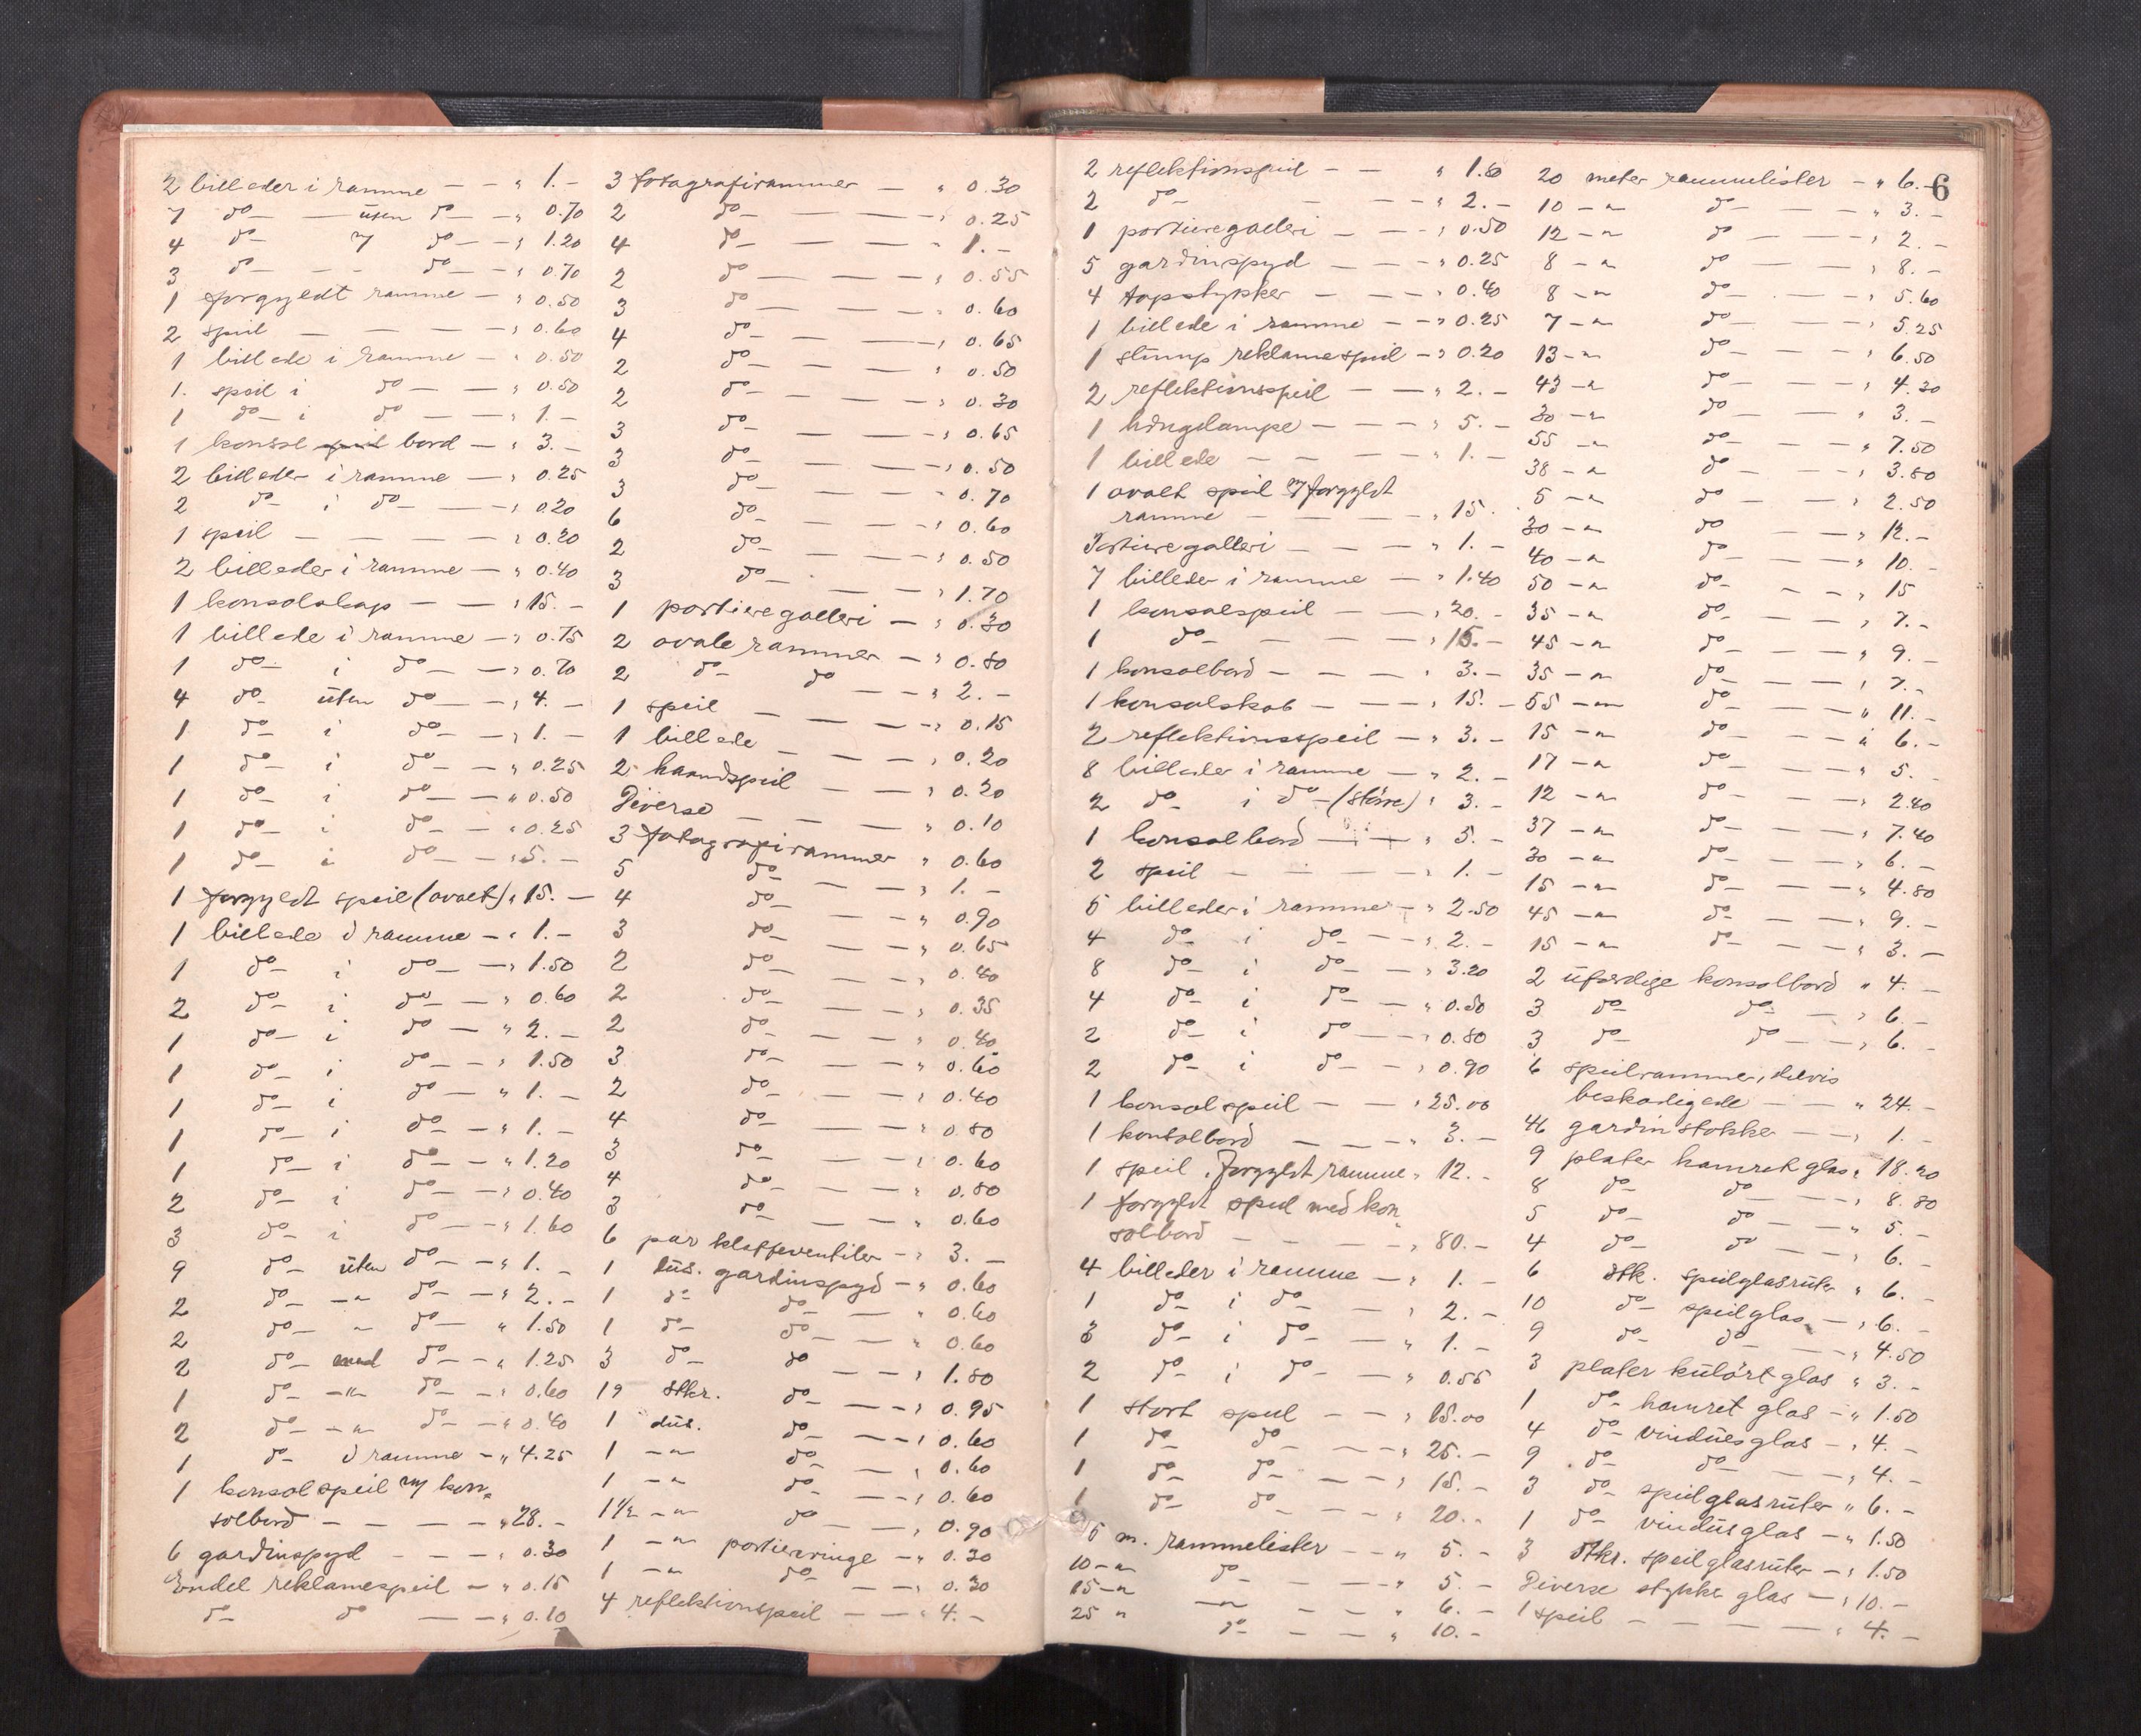 2 billeder i ramme — — " 1.-
7 do — uten do — " 0.70
4 do m/ do — " 1.20
3 do - - do — " 0.70
1 forgyldt ramme — " 0.50
2 speil — — — — " 0.60
1 billede i ramme — " 0.50
1. speil i do — — " 0.50
1 do i do — — " 1.-
1 konsol bord — " 3.-
2 billeder i ramme — " 0.25
2 do i do — — " 0.20
1 speil — — — — " 0.20
2 billeder i ramme — " 0.40
1 konsolskap — — " 15.-
1 billede i ramme — " 0.75
1 do i do — — " 0.70
4 do uten do — " 4.-
1 do i do — — " 1.-
1 do i do — — " 0.25
1 do i do — — " 0.50
1 do i do — — " 0.25
1 do i do — — " 5.-
1 forgyldt speil (ovalt) " 15.-
1 billede i ramme — " 1.-
1 do i do — " 1.50
2 do i do — " 0.60
1 do i do — " 2.-
1 do i do — " 1.50
1 do i do — " 1.-
1 do i do — " 1.-
1 do i do — " 1.20
2 do i do — " 0.40
3 do i do — " 1.60
9 do uten do — " 1.-
2 do — " — do — " 2.-
2 do — " — do — " 1.50
2 do med do — " 1.25
1 do — " — do — " 0.60
2 do — " — do — " 0.40
1 do i ramme — " 4.25
1 konsolspeil m/ kon-
solbord — — — — " 28.-
6 gardinspyd — — — " 0.30
Endel reklamespeil — " 0.15
do do — — " 0.10
3 fotografirammer — " 0.30
2 do — — — " 0.25
4 do — — — " 1.-
2 do — — — " 0.55
3 do — — — " 0.60
4 do — — — " 0.65
2 do — — — " 0.50
2 do — — — " 0.30
3 do — — — " 0.65
3 do — — — " 0.50
3 do — — — " 0.70
6 do — — — " 0.60
2 do — — — " 0.50
3 do — — — " 1.70
1 portieregalleri — " 0.30
2 ovale rammer — " 0.80
2 do do — — " 2.-
1 speil — — — — " 0.15
1 billede — — — " 0.20
2 haandspeil — — " 0.20
Diverse — — — " 0.10
3 fotografirammer " 0.60
5 do — — — " 1.-
4 do — — — " 0.90
3 do — — — " 0.65
2 do — — — " 0.40
2 do — — — " 0.35
2 do — — — " 0.40
3 do — — — " 0.60
2 do — — — " 0.40
4 do — — — " 0.80
3 do — — — " 0.60
4 do — — — " 0.80
3 do — — — " 0.60
6 par klaffeventiler — " 3.-
1 dus. gardinspyd — " 0.60
1 do do — — " 0.60
1 do do — — " 0.60
3 do do — — " 1.80
19 stkr. do — — " 0.95
1 dus. do — — " 0.60
1 — " do — — " 0.60
1 — " do — — " 0.60
1½ — " do — — " 0.90
1 — " portierringe — " 0.30
1 — " do — — " 0.30
4 reflektionspeil — — " 4.-
6
2 reflektionspeil — — " 1.80
2 do - — — " 2.-
1 portieregalleri — — " 0.50
5 gardinspyd — — — " 0.25
4 tapstykker — — — " 0.40
1 billede i ramme — — " 0.25
1 stump reklamespeil — " 0.20
2 reflektionsspeil — — " 2.-
1 hængelampe — — — " 5.-
1 billede — — — — " 1.-
1 ovalt speil m/ forgyldt
ramme — — — — " 15.
Portieregalleri — — — " 1.-
7 billeder i ramme — " 1.40
1 konsolspeil — — " 20.-
1 do — — — " 15.-
1 konsolbord — — — " 3.-
1 konsolskab — — — " 15.-
2 reflektionsspeil — " 3.-
8 billeder i ramme — " 2.-
2 do i do (större) " 3.-
1 konsolbord — — " 5.-
2 speil — — — — " 1.-
5 billeder i rammer — " 2.50
4 do i do — — " 2.-
8 do i do — " 3.20
4 do i do — " 0.50
2 do i do — — " 0.80
2 do i do — — " 0.90
1 konsolspeil — — " 25.00
1 konsolbord — — — " 3.-
1 speil i forgyldt ramme " 12.-
1 forgyldt speil med kon
solbord — — — — " 80.-
4 billeder i ramme — " 1.-
1 do i do — " 2.-
3 do i do — " 1.-
2 do i do — " 0.55
1 stort speil — — " 15.00
1 do do — — " 25.-
1 do do — — " 15.-
1 do do — — " 20.-
5 m. rammelister — " 5.-
10 — " do — — " 5.-
15 — " — " — — " 6.-
25 " do — — " 10.-
20 meter rammelister — " 6.-
10 — " do — — " 3.-
12 — " do — — " 2.-
8 — " do — — " 8.-
8 — " do — — " 5.60
7 — " do — — " 5.25
13 — " do — — " 6.50
43 — " do — — " 4.30
30 — " do — — " 3.-
55 — " do — — " 7.50
38 — " do — — " 3.80
5 — " do — — " 2.50
30 — " do — — " 12.-
40 — " do — — " 10.-
50 — " do — — " 15
35 — " do — — " 7.-
45 — " do — — " 9.-
35 — " do — — " 7.-
55 — " do — — " 11.-
15 — " do — — " 6.-
17 — " do — — " 5.-
12 — " do — — " 2.40
37 — " do — — " 7.40
30 — " do — — " 6.-
15 — " do — — " 4.80
45 — " do — — " 9.-
15 — " do — — " 3.-
2 ufærdige konsolbord " 4.-
3 do do — " 6.-
3 do do — " 6.-
6 speilrammer, delvis
beskadigede — — " 24.-
46 gardinstokke — — " 1.-
9 plater hamret glas " 18.20
8 do do — — " 8.80
5 do do — — " 5.-
4 do do — — " 6.-
6 stk. speilglasruter " 6.-
10 do speilglas — " 6.-
9 do do — — " 4.50
3 plater kulört glas " 3.-
1 do hamret glas — " 1.50
4 do vindusglas — " 4.-
9 do do — — " 4.-
3 do speilglasruter " 6.-
1 do vindusglas — " 1.50
3 stkr. speilglasruter — " 1.50
Diverse stykker glas — " 10.-
1 speil — — — — " 4.-